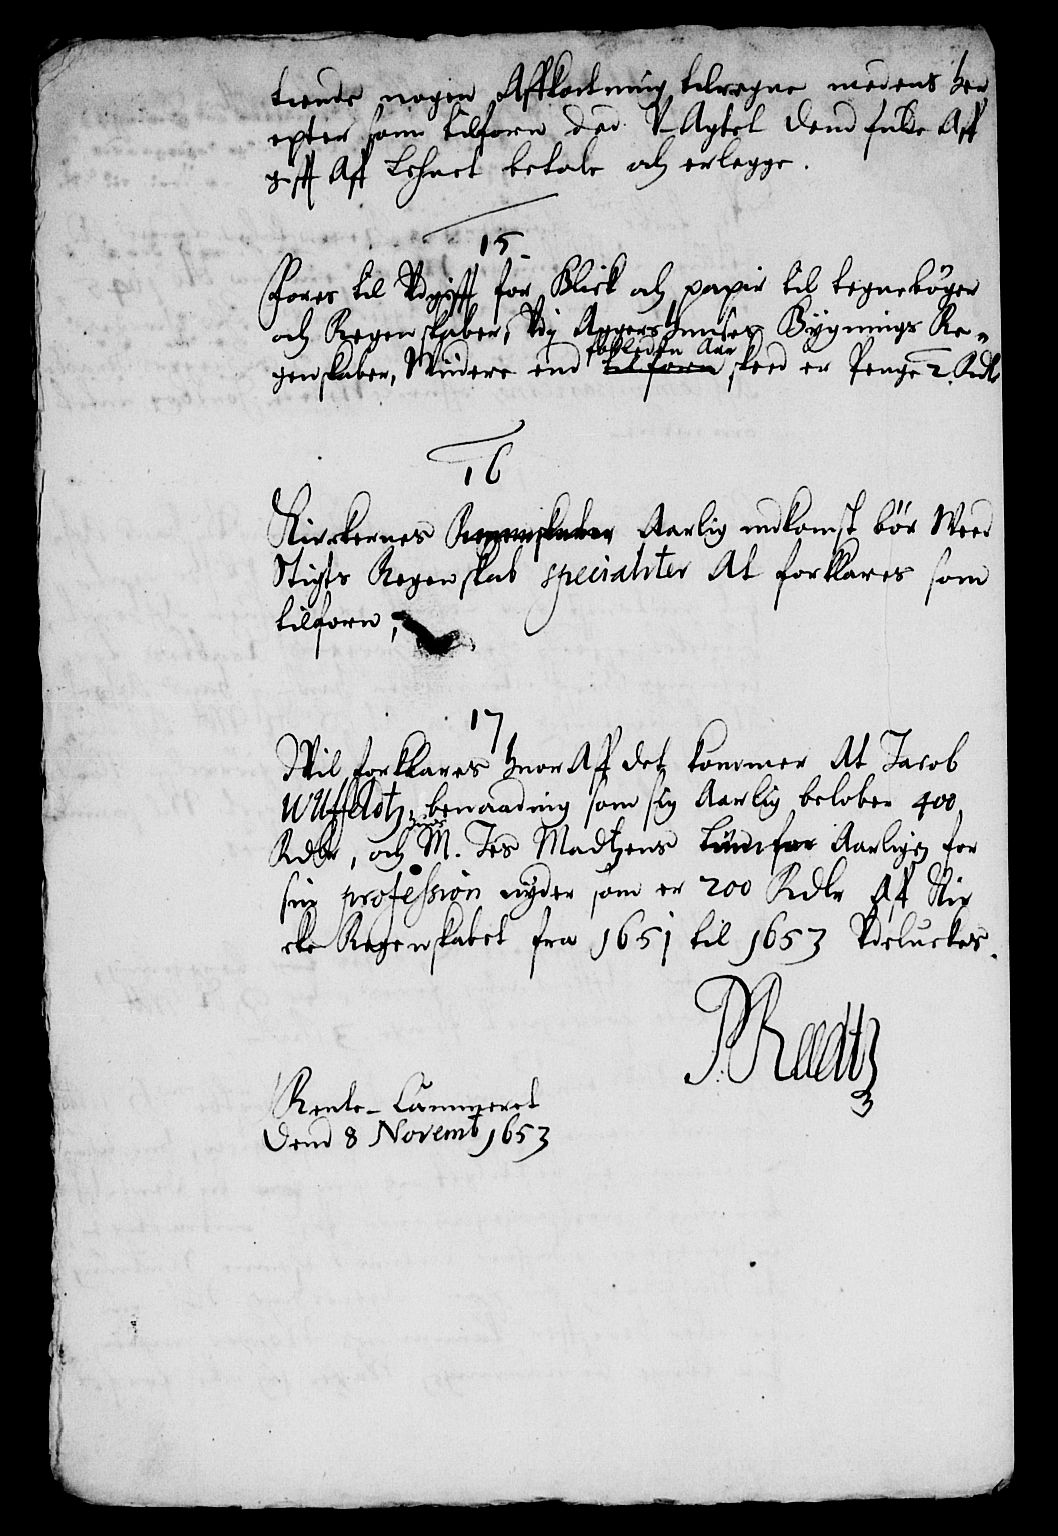 tiende nogen Affkortning tilregne medens her
epter som tilforn der V-Agtet dend fulde Aff
gifft Aff Lehnet betale och erlegge.
15
Føres til Vdgifft for Blick och papir til tegnebøger
och Regenskaber, Vdj Aggershuuses Bygnings Re-
forleden Aar
genskaber, Mindere end tilforn skeed er Penge 2. Rdlr
16
Kirckernes Regenskaber Aarlig indkomst bør Weed
Stigts Regenskab specialiter At forklares som
tilforn,
17
Wil forklares huor Aff det kommer At Jacob
Wuffeldtz benaading som sig Aarlig beløber 400
huis
Rdlr, och M. Jes Madtzens Aarligen for
sin profession nyder som er 200 Rdlr Aff Kir
cke Regenskabet fra 1651 til 1653 Vdeluckes.
P. Reedtz
Rente-Cammeret
Dend 8 Novemb 1653